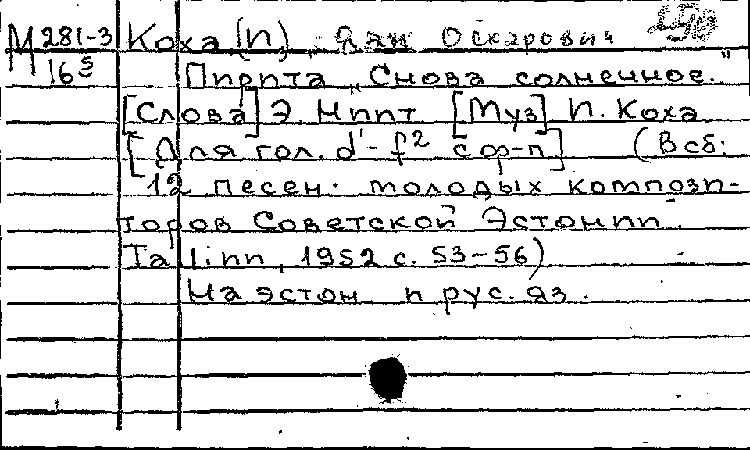 М 281-3 Коха (Я), Яан Оскарович
16 5 Пирита „Снова солнечное."
[Слова] Э. Нийт [Муз] Я. Коха
[Для гол. d'-f² с ф-п] (В сб:
12 песен молодых компози-
торов Советской Эстонии
Tallinn, 1952 с. 53-56)
На эстон и рус. яз.